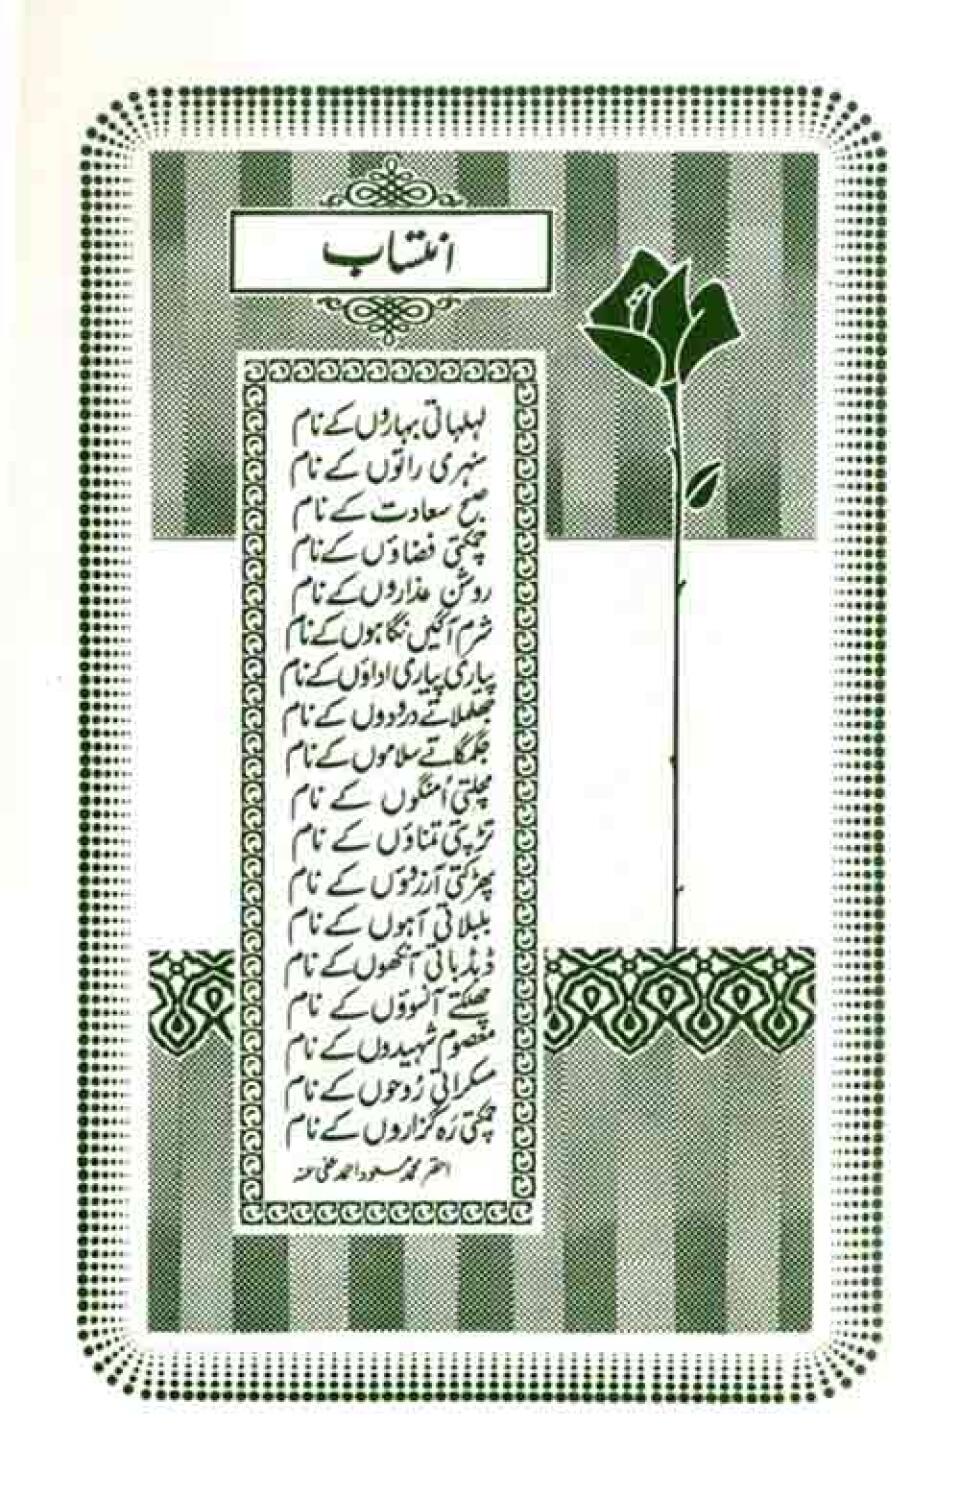 انتساب
لہلہاتی بہاروں کے نام
سنہری راتوں کے نام
صبح سعادت کے نام
چمکتی فضاؤں کے نام
روشن عذاروں کے نام
شرم آگیں نگاہوں کے نام
پیاری پیاری اداؤں کے نام
جھلملاتے درودوں کے نام
جگمگاتے سلاموں کے نام
مچلتی اُمنگوں کے نام
تڑپتی تمناؤں کے نام
پھڑکتی آرزوؤں کے نام
بلبلاتی آہوں کے نام
ڈبڈباتی آنکھوں کے نام
چھلکتے آنسوؤں کے نام
معصوم شہیدوں کے نام
مسکراتی رُوحوں کے نام
چمکتی رَہ گزاروں کے نام
احقر محمد مسعود احمد عفی عنہ